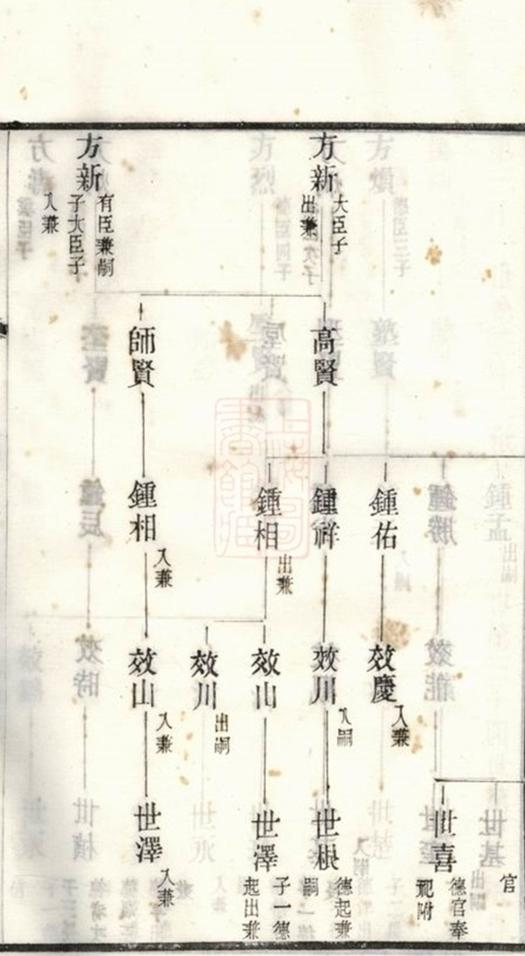 方新
大臣子
出兼
方新
有臣兼嗣
子大臣子
入兼
高賢
師賢
鍾佑
鍾祥
鍾相
出兼
鍾相
入兼
效慶
入兼
效川
入嗣
效山
效川
出嗣
效山
入兼
官
世喜
德官奉
祀附
世根
德起兼
嗣
世澤
子一德
起出兼
世澤
入兼